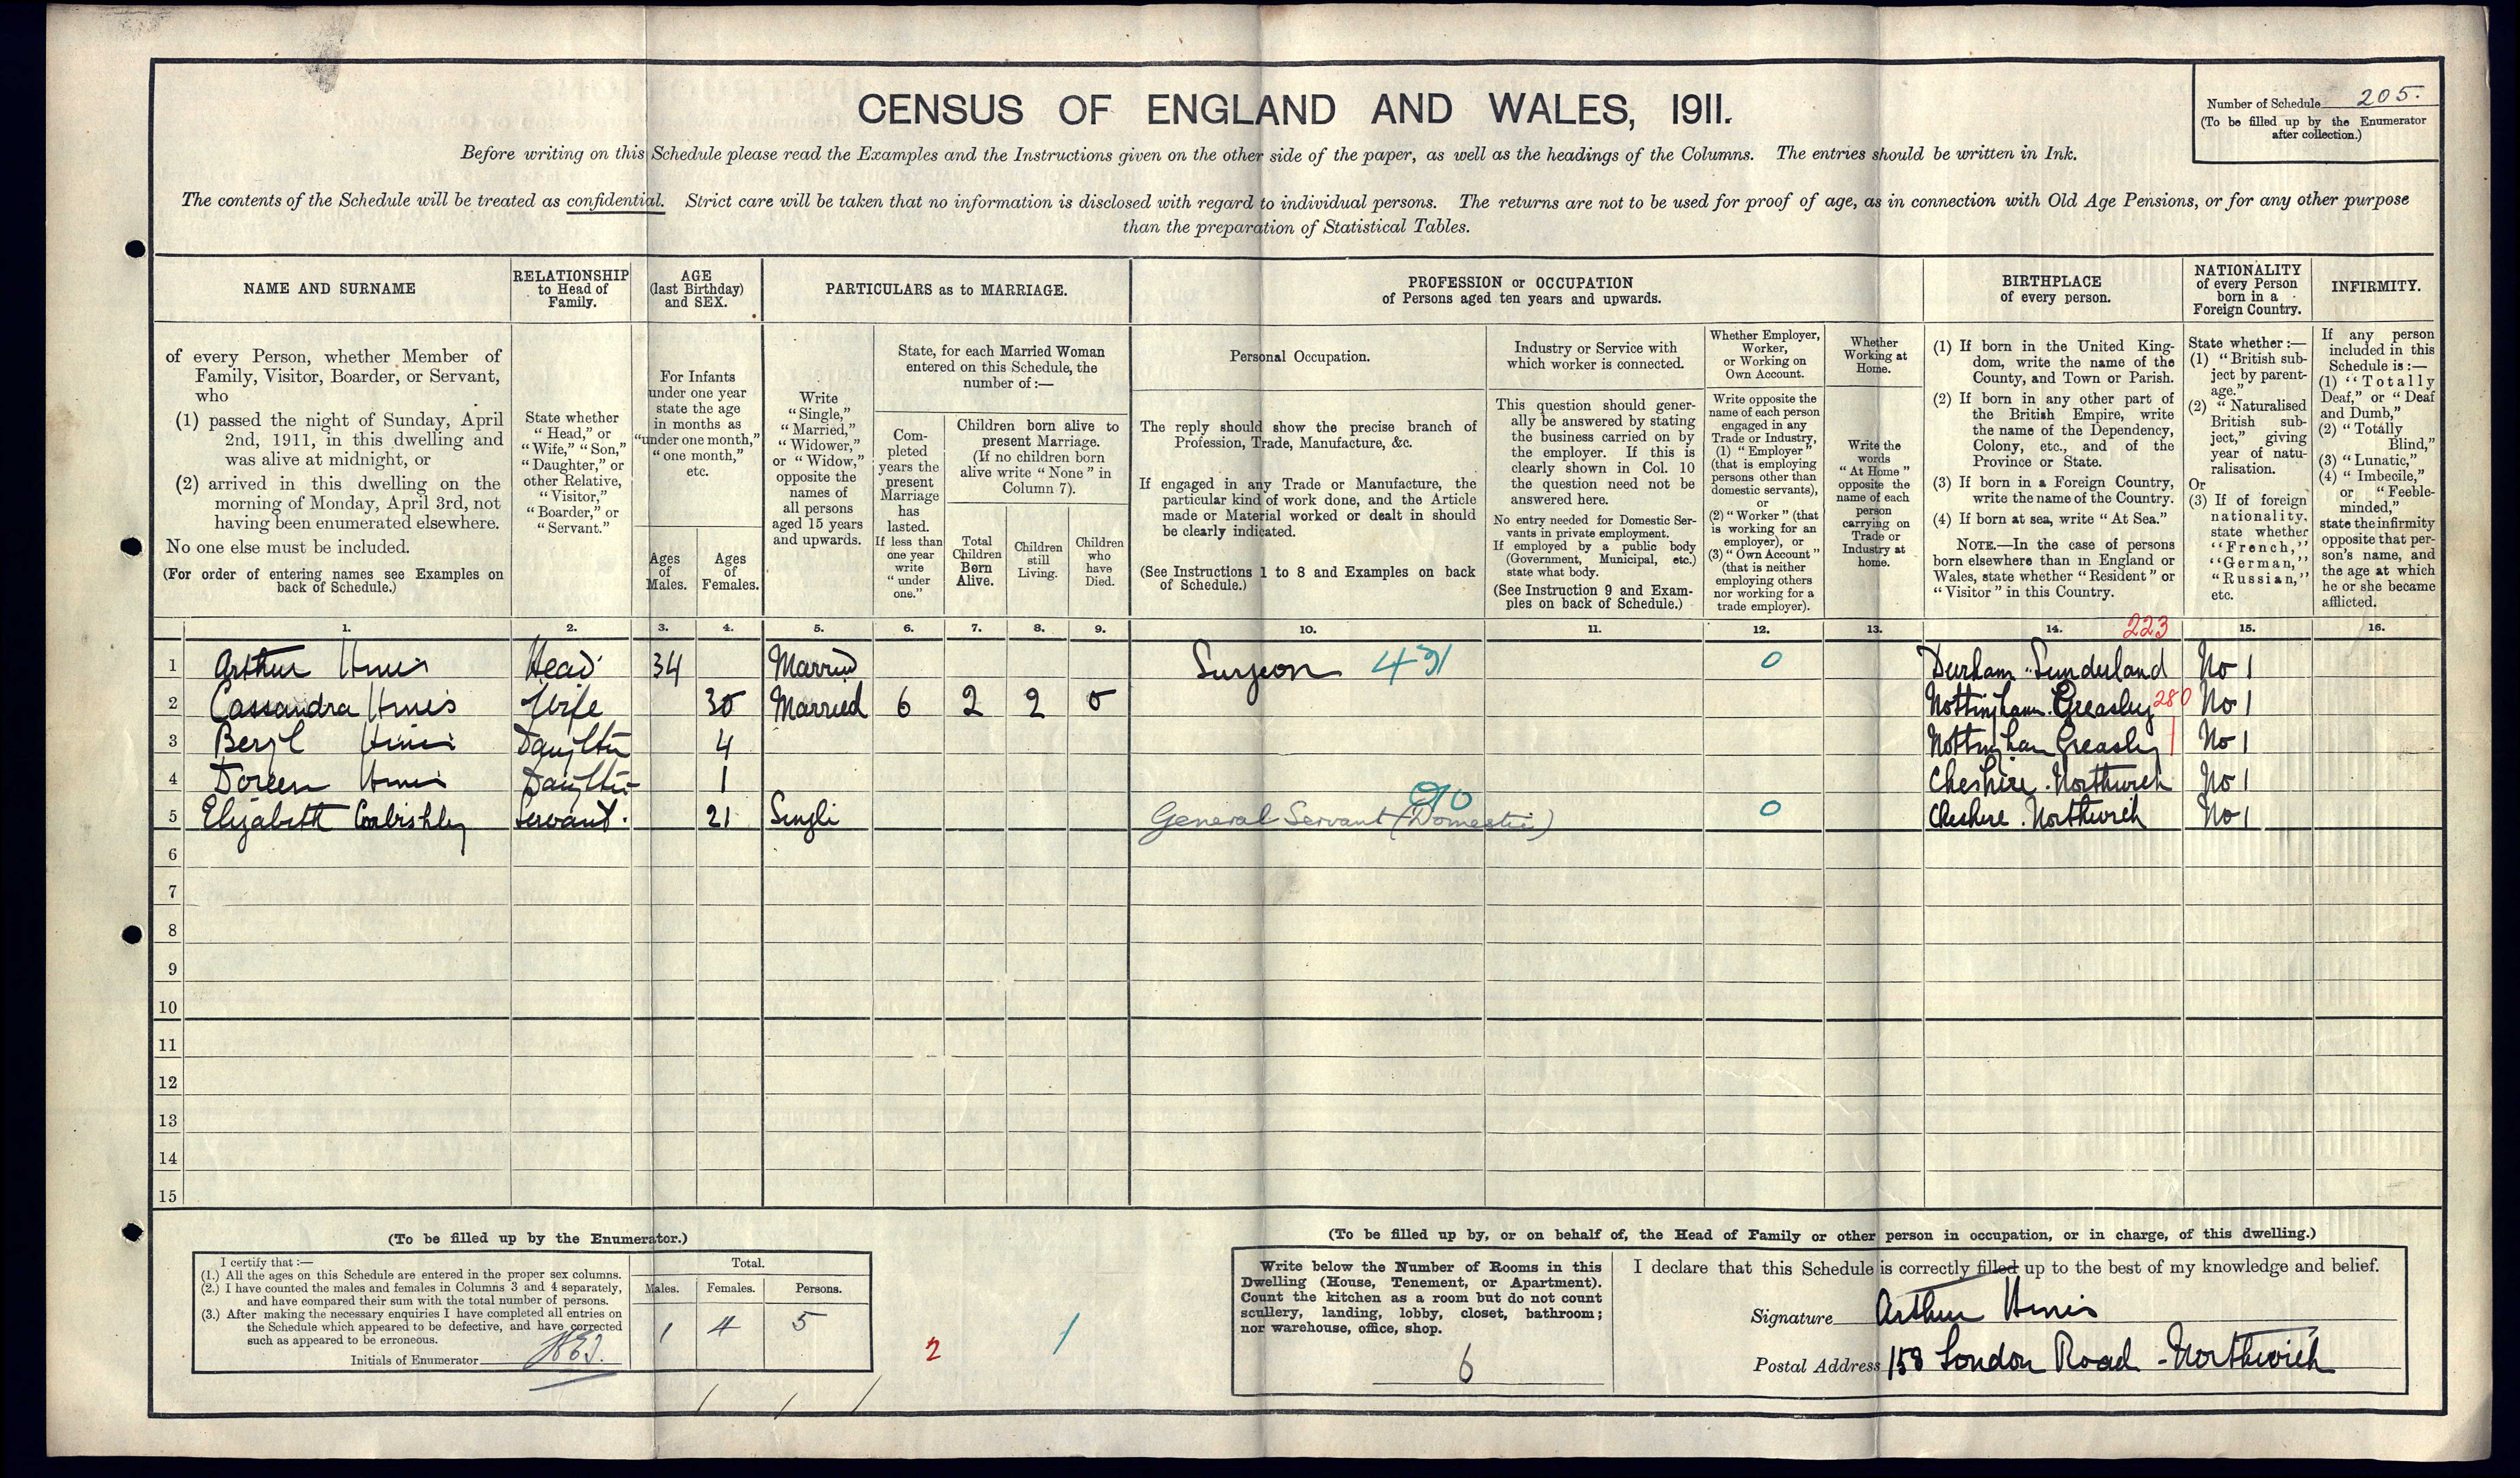 CENSUS OF ENGLAND AND WALES, 1911.
Number of Schedule 205.
(To be filled up by the Enumerator
after collection.)
Before writing on this Schedule please read the Examples and the Instructions given on the other side of the paper, as well as the headings of the Columns. The entries should be written in Ink.
The contents of the Schedule will be treated as confidential. Strict care will be taken that no information is disclosed with regard to individual persons. The returns are not to be used for proof of age, as in connection with Old Age Pensions, or for any other purpose
than the preparation of Statistical Tables.
NAME AND SURNAME
of every Person, whether Member of
Family, Visitor, Boarder, or Servant,
who
(1) passed the night of Sunday, April
2nd, 1911, in this dwelling and
was alive at midnight, or
(2) arrived in this dwelling on the
morning of Monday, April 3rd, not
having been enumerated elsewhere.
No one else must be included.
(For order of entering names see Examples on
back of Schedule.)
RELATIONSHIP
to Head of
Family.
State whether
"Head," or
"Wife," "Son,"
"Daughter," or
other Relative,
"Visitor,"
"Boarder," or
"Servant."
AGE
(last Birthday)
and SEX.
For Infants
under one year
state the age
in months as
"under one month,"
"one month,"
etc.
Ages
of
Males.
Ages
of
Females.
PARTICULARS as to MARRIAGE.
Write
"Single,"
"Married,"
"Widower,"
or "Widow,"
opposite the
names of
all persons
aged 15 years
and upwards.
State, for each Married Woman
entered on this Schedule, the
number of:—
Com-
pleted
years the
present
Marriage
has
lasted.
If less than
one year
write
"under
one."
Children born alive to
present Marriage.
(If no children born
alive write "None" in
Column 7).
Total
Children
Born
Alive.
Children
still
Living.
Children
who
have
Died.
PROFESSION or OCCUPATION
of Persons aged ten years and upwards.
Personal Occupation.
The reply should show the precise branch of
Profession, Trade, Manufacture, &c.
If engaged in any Trade or Manufacture, the
particular kind of work done, and the Article
made or Material worked or dealt in should
be clearly indicated.
(See Instructions 1 to 8 and Examples on back
of Schedule.)
Industry or Service with
which worker is connected.
This question should gener-
ally be answered by stating
the business carried on by
the employer. If this is
clearly shown in Col. 10
the question need not be
answered here.
No entry needed for Domestic Ser-
vants in private employment.
If employed by a public body
(Government, Municipal, etc.)
state what body.
(See Instruction 9 and Exam-
ples on back of Schedule.)
Whether Employer,
Worker,
or Working on
Own Account.
Write opposite the
name of each person
engaged in any
Trade or Industry,
(1) "Employer"
(that is employing
persons other than
domestic servants),
or
(2) "Worker" (that
is working for an
employer), or
(3) "Own Account"
(that is neither
employing others
nor working for a
trade employer).
Whether
Working at
Home.
Write the
words
"At Home"
opposite the
name of each
person
carrying on
Trade or
Industry at
home.
BIRTHPLACE
of every person.
(1) If born in the United King-
dom, write the name of the
County, and Town or Parish.
(2) If born in any other part of
the British Empire, write
the name of the Dependency,
Colony, etc., and of the
Province or State.
(3) If born in a Foreign Country,
write the name of the Country.
(4) If born at sea, write "At Sea."
NOTE.—In the case of persons
born elsewhere than in England or
Wales, state whether "Resident" or
"Visitor" in this Country.
NATIONALITY
of every Person
born in a
Foreign Country.
State whether :—
(1) "British sub-
ject by parent-
age."
(2) "Naturalised
British sub-
ject," giving
year of natu-
ralisation.
Or
(3) If of foreign
nationality,
state whether
"French,"
"German,"
"Russian,"
etc.
INFIRMITY.
If any person
included in this
Schedule is :—
(1) "Totally
Deaf," or "Deaf
and Dumb,"
(2) "Totally
Blind,"
(3) "Lunatic,"
(4) "Imbecile,"
or "Feeble-
minded,"
state the infirmity
opposite that per-
son's name, and
the age at which
he or she became
afflicted.
1. 2. 3. 4. 5. 6. 7. 8. 9. 10. 11. 12. 13. 14. 223 15. 16.
1 Arthur Head 34 Married Surgeon 0 Durham Sunderland No 1
2 Cassandra Wife 30 Married 6 2 2 0 Nottingham Greasley 280 No 1
3 Beryl Daughter 4 Nottingham Greasley No 1
4 Doreen Daughter 1 Cheshire. Northwich No 1
5 Elizabeth Servant. 21 Single General Servant (Domestic) 0 Cheshire. Northwich No 1
6
7
8
9
10
11
12
13
14
15
(To be filled up by the Enumerator.)
I certify that :—
(1.) All the ages on this Schedule are entered in the proper sex columns.
(2.) I have counted the males and females in Columns 3 and 4 separately,
and have compared their sum with the total number of persons.
(3.) After making the necessary enquiries I have completed all entries on
the Schedule which appeared to be defective, and have corrected
such as appeared to be erroneous.
Initials of Enumerator
Total.
Males. Females. Persons.
1 4 5
2 1
(To be filled up by, or on behalf of, the Head of Family or other person in occupation, or in charge, of this dwelling.)
Write below the Number of Rooms in this
Dwelling (House, Tenement, or Apartment).
Count the kitchen as a room but do not count
scullery, landing, lobby, closet, bathroom;
nor warehouse, office, shop.
6
I declare that this Schedule is correctly filled up to the best of my knowledge and belief.
Signature Arthur
Postal Address 158 London Road - Northwich